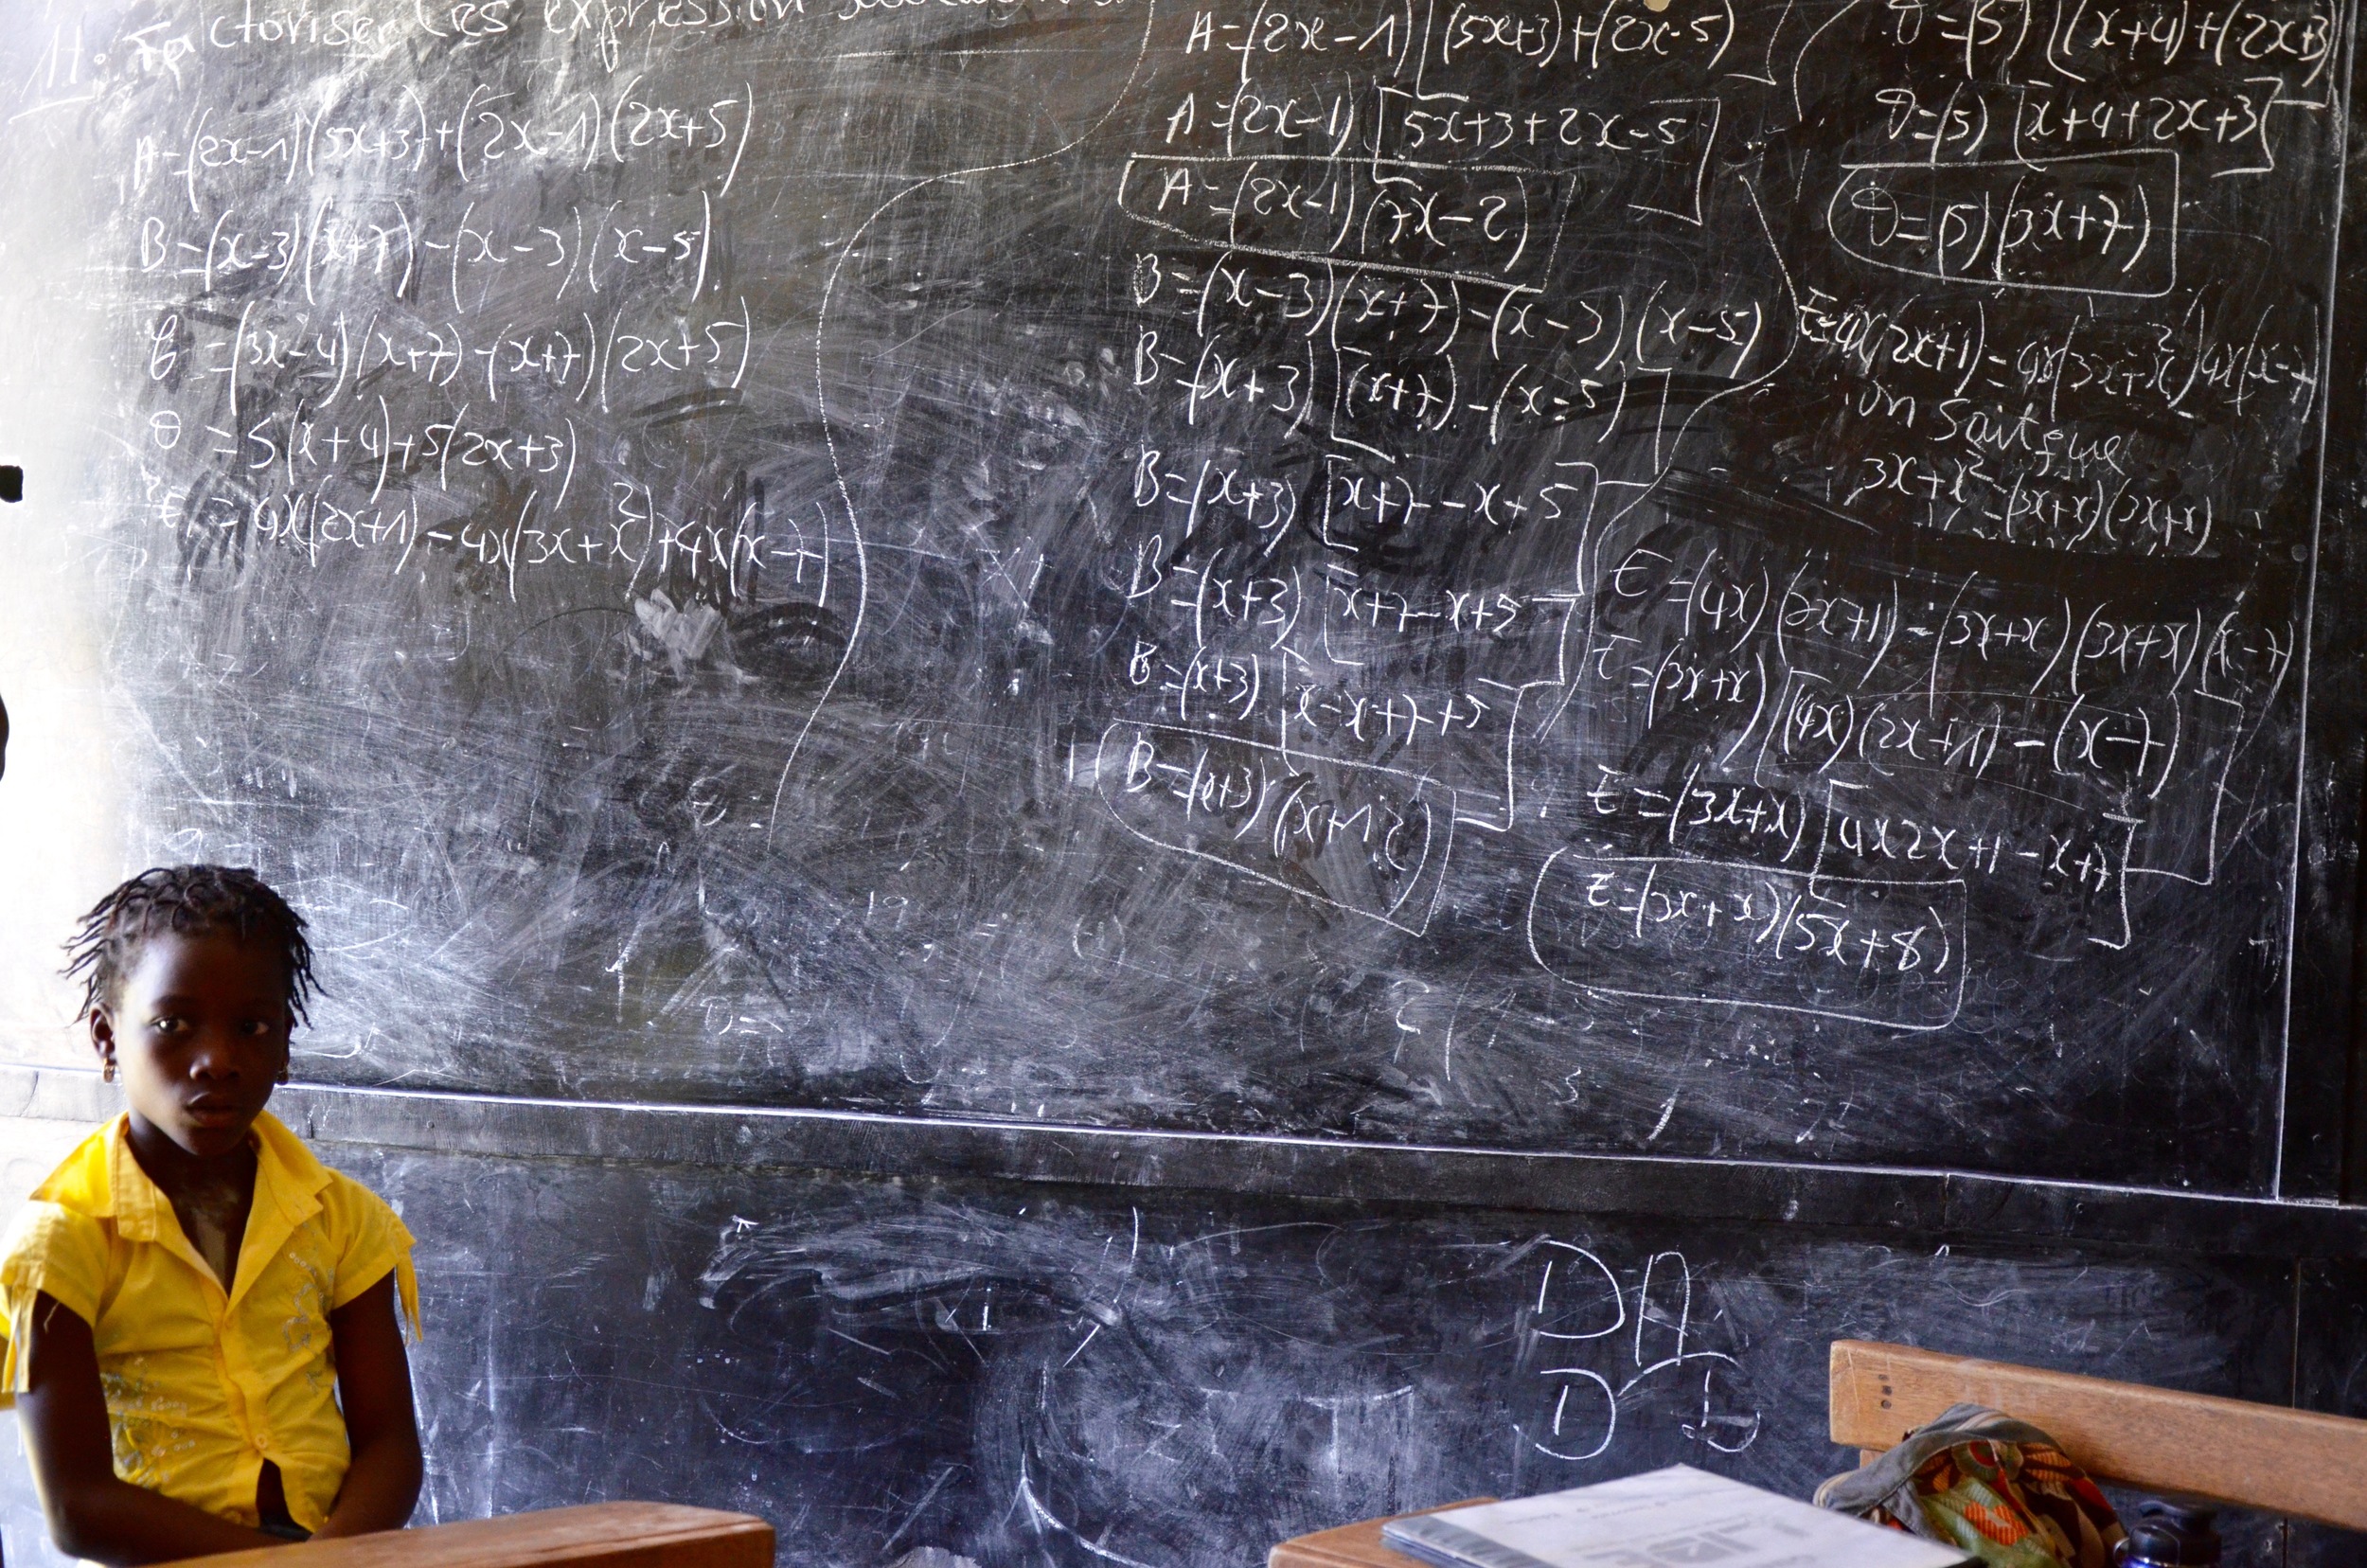 11: Factoriser les expression
A=(2x-1)(5x+3)+(2x-1)(2x+5)
B=(x-3)(x+7)-(x-3)(x-5)
C=(3x-4)(x+7)-(x+7)(2x+5)
D=5(x+4)+5(2x+3)
E=4x(2x+1)-4x(3x+x²)+4x(x-7)
A=(2x-1)[(5x+3)+(2x-5)]
A=(2x-1)[5x+3+2x-5]
A=(2x-1)(7x-2)
B=(x-3)(x+7)-(x-3)(x-5)
B=(x+3)[(x+7)-(x-5)]
B=(x+3)[x+7-x+5]
B=(x+3)[x+7-x+5]
B=(x+3)[x-x+7+5]
B=(x+3)(x+12)
D=(5)[(x+4)+(2x+3)]
D=(5)[x+4+2x+3]
D=(5)(3x+7)
E=4x(2x+1)-4x(3x+x²)4x(x-7)
on sait que
3x+x²=(3x+x)(3x+x)
E=(4x)(2x+1)-(3x+x)(3x+x)(x-7)
E=(3x+x)[(4x)(2x+1)-(x-7)]
E=(3x+x)[4x2x+1-x+7]
E=(3x+x)(5x+8)
DA
D